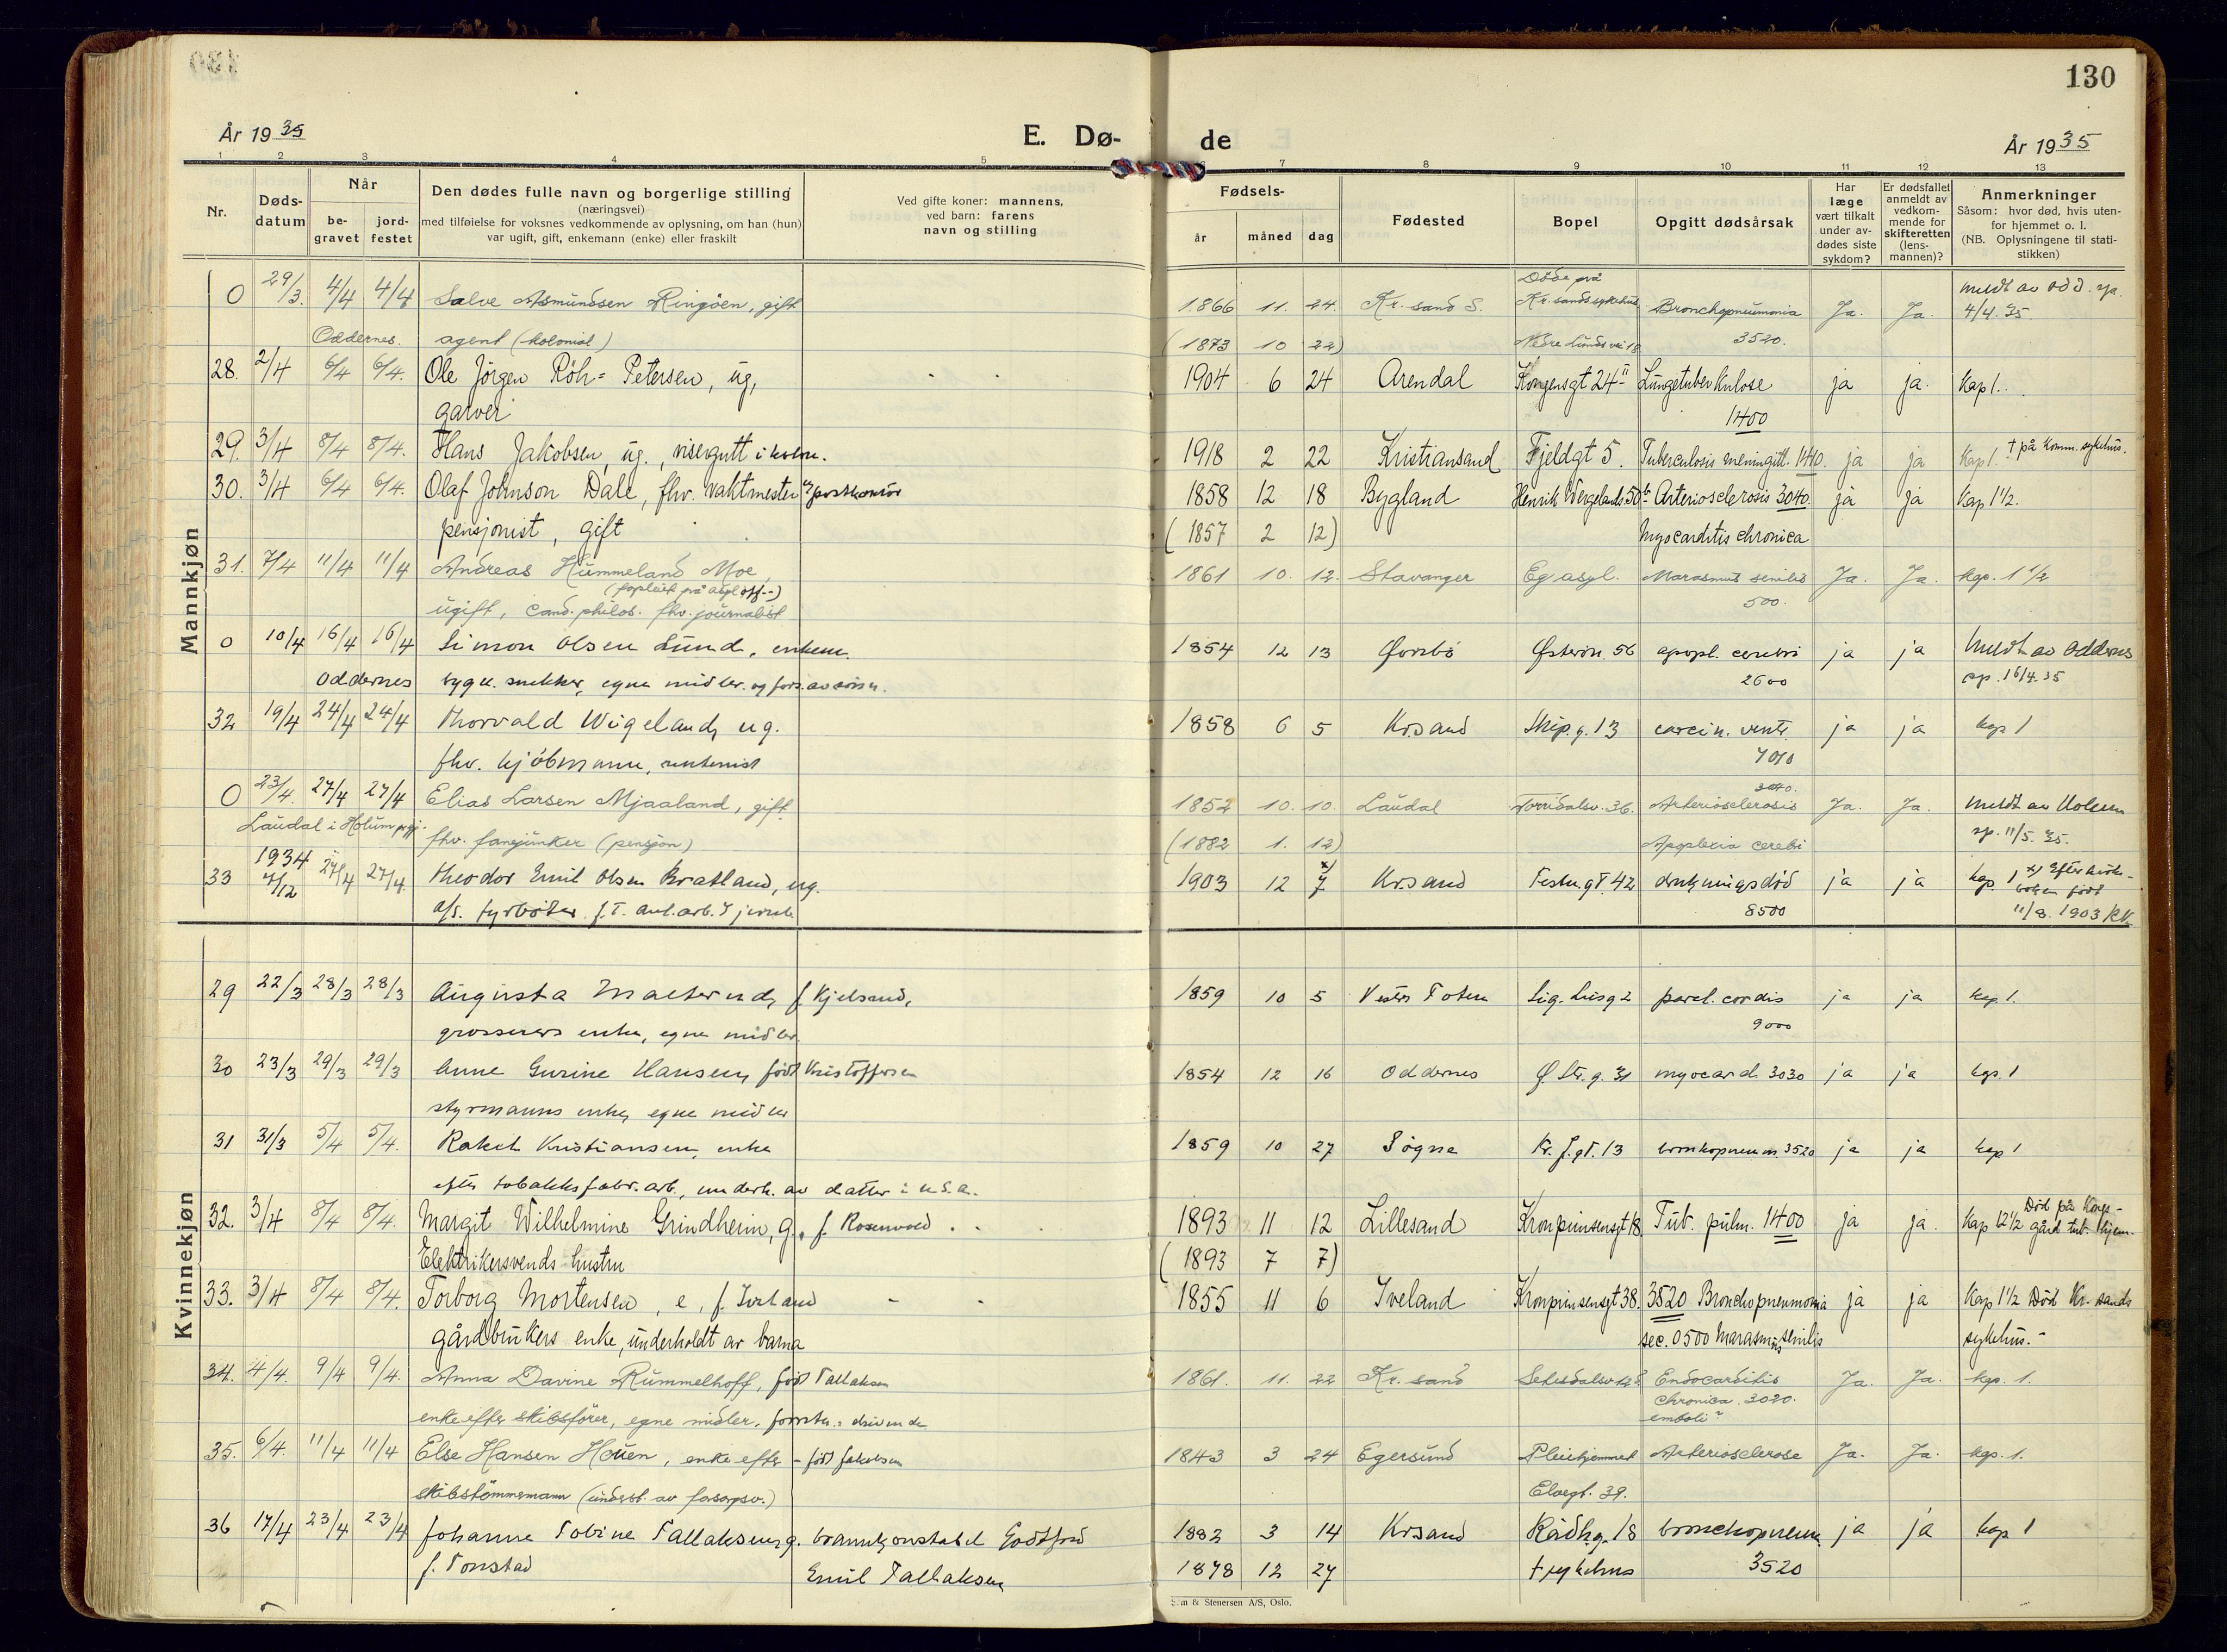 130
År 1935 E. Dø- de År 1935
1 2 3 4 5 6 7 8 9 10 11 12 13
Nr.
Døds-
datum
Når
be-
gravet
jord-
festet
Den dødes fulle navn og borgerlige stilling
(næringsvei)
med tilføielse for voksnes vedkommende av oplysning, om han (hun)
var ugift, gift, enkemann (enke) eller fraskilt
Ved gifte koner: mannens,
ved barn: farens
navn og stilling
Fødsels-
år måned dag
Fødested
Bopel
Opgitt dødsårsak
Har
læge
vært tilkalt
under av-
dødes siste
sykdom?
Er dødsfallet
anmeldt av
vedkom-
mende for
skifteretten
(lens-
mannen)?
Anmerkninger
Såsom: hvor død, hvis uten-
for hjemmet o. l.
(NB. Oplysningene til stati-
stikken)
Mannkjøn
0 29/3. 4/4 4/4 Salve Asmundsen Ringöen, gift 1866 11. 24. Kr. sand S. Döde på Kr.sands sykehus Bronchopneumonia Ja. Ja. meldt av Odd. sp. 4/4. 35.
Oddernes. agent (kolonial) (1873 10 22) Nedre Lunds vei 18 3520.
28. 2/4 6/4 6/4. Ole Jörgen Röh= Petersen, ug, 1904 6 24 Arendal Kongensgt 24 II Lungetuberkulose ja ja. Kap 1.
garver 1400
29. 3/4 8/4 8/4. Hans Jakobsen, ug., visergutt i kolon. 1918 2 22 Kristiansand Fjeldgt 5. Tuberculosis meningitt. 1410. ja ja Kap 1. † på Komm. sykehus.
30. 3/4 6/4 6/4. Olaf Johnson Dale, fhv. vaktmester v/ postkontor 1858 12 18 Bygland Henrik Wergelands 50 b Arteriosclerosis 3040. ja ja Kap 1½.
pensjonist, gift (1857 2 12) Myocarditis chronica
31. 7/4 11/4 11/4 Andreas Hummeland Moe, 1861 10. 12. Stavanger Eg asyl. Marasmus senilis Ja. Ja. kap. 1½
(forpleiet på asyl off.)
ugift, cand. philos. fhv. journalist 500.
0 10/4 16/4 16/4 Simon Olsen Lund, enkem. 1854 12 13 Øvrebö Østerv. 56 apopl. cerebri ja ja Meldt av Oddernes
Oddernes bygn. snekker, egne midler og fors. av sönn. 2600 sp. 16/4. 35
32 19/4 24/4 24/4 Thorvald Wigeland, ug. 1858 6 5 Kr.sand Skip. g. 13 carcin. ventr. ja ja kap 1
fhv. kjöbmann, rentenist
0 23/4. 27/4 27/4 Elias Larsen Mjaaland, gift 1852 10. 10. Laudal Torridalsv. 36. 3040. Arteriosclerosis Ja. Ja. meldt av Holum
Laudal i Holum prgj. fhv. fanejunker (pensjon) (1882 1. 12) Apoplexia cerebi sp. 11/5. 35.
33 1934 7/12 27/4 27/4. Theodor Emil Olsen Bratland, ug. 1903 12 x) 7 Kr.sand Festn. gt. 42 drukningsdöd ja ja kap. 1 x) Efter kirke-
a/s. fyrböter 8500 boken född
11/8. 1903 KN.
Kvinnekjøn
29 22/3 28/3 28/3 Augusta Maeterud, f. Kjelsaas, 1859 10 5 Vestre Toten paral. cordis ja ja kap 1.
grosserers enke, egne midler. 9000
30 23/3 29/3 29/3 Anne Gurine Hansen, födt Kristoffersen 1854 12 16 Oddernes Ø. Str. g. 31 myocard. 3030 ja ja kap. 1
styrmanns enke, egne midler
31 31/3 5/4 5/4. Rakel Kristiansen, enke 1859 10 27 Sögne Kr. f. gt. 13 bronkopneum. 3520 ja ja kap 1
efter tobakksfabr. arb., underh. av datter i U.S.A.
32. 3/4 8/4 8/4. Margit Wilhelmine Grindheim, g., f. Rosenvold 1893 11 12 Lillesand Kronprinsensgt 18. Tub. pulm. 1400 ja ja. Kap 12½ Död på Konge-
gård tub. hjem.
Elektrikersvends hustru (1893 7 7)
33. 3/4 8/4 8/4. Torborg Mortensen, e, f. Iveland 1855 11 6 Iveland Kronprinsensgt 38. 3520 Bronchopneumonia ja ja Kap 1½ Död Kr. sands
gårdbrukers enke, underholdt av barna sec. 0500 Marasmus senilis sykehus.-
34. 4/4. 9/4 9/4. Anna Davine Rummelhoff, född Tallaksen 1861. 11. 22 Kr. sand Setesdalsv. Endocarditis Ja. Ja. kap. 1.
enke efter skibsförer, egne midler, chronica. 3020.
emboli?
35. 6/4. 11/4 11/4 Else Hansen Houen, enke efter - född Jakobsen 1843 3 24 Egersund Pleiehjemmet Arteriosclerose Ja. Ja. kap. 1.
skibstömmermann (underst. av forsorgsv.) Elvegt. 39.
36 17/4 23/4 23/4 Johanne Tobine Tallaksen, g. brannkonstabel Godtfred 1882 3 14 Kr.sand Rådh. g. 18 bronchopneum. ja ja kap 1
f. Tonstad Emil Tallaksen 1878 12 27 † sykehus 3520
Sem & Stenersen A/S, Oslo.